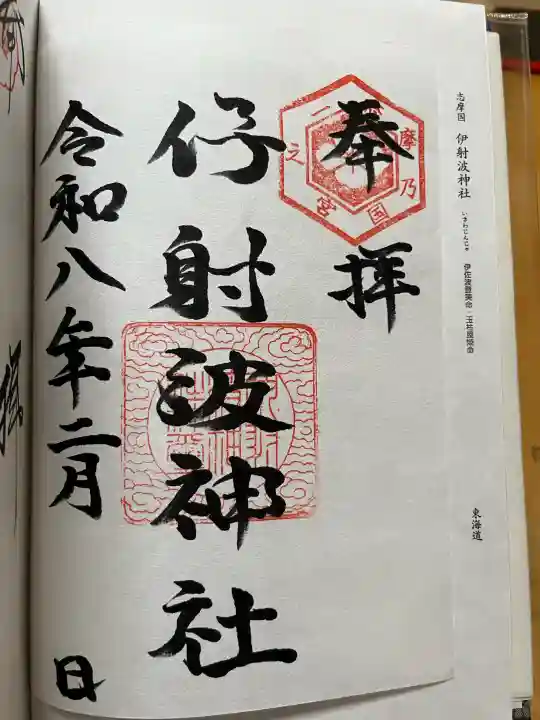 志摩国 伊射波神社 いざわじんじゃ 伊佐波登美命・玉柱屋姫命
東海道
奉拝
摩乃国一之宮
伊射波神社
令和八年二月 日